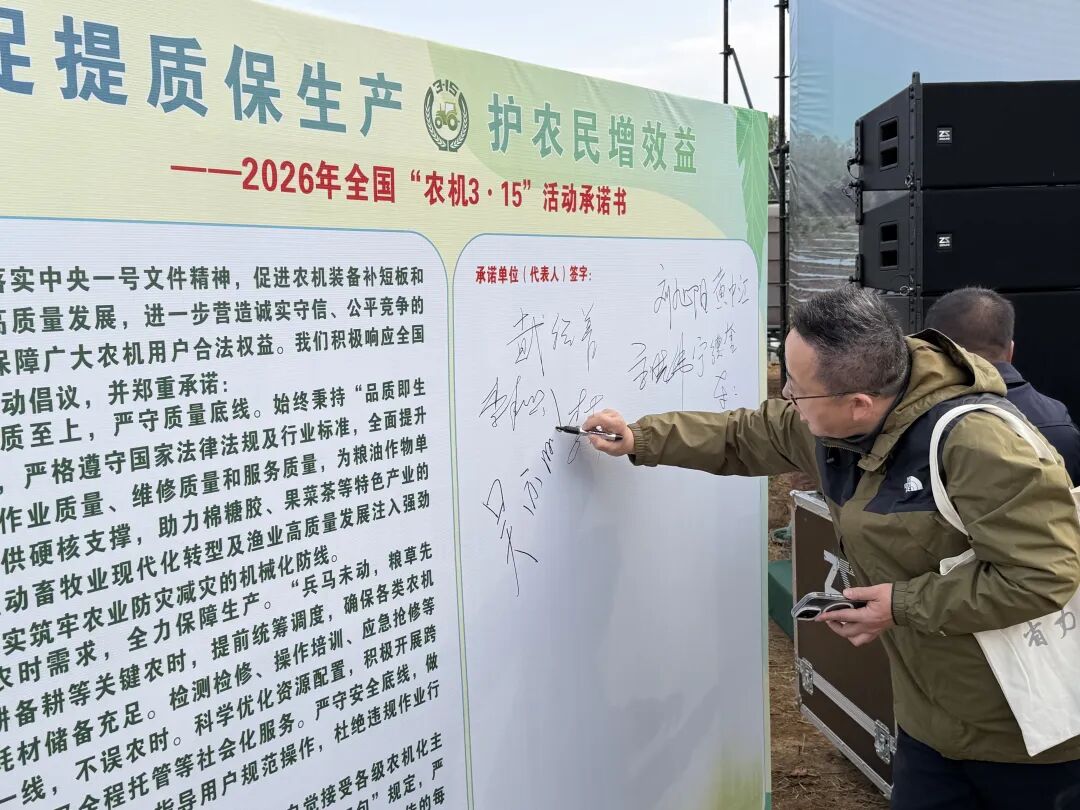 促提质保生产 3·15 护农民增效益
——2026年全国“农机3·15”活动承诺书
落实中央一号文件精神，促进农机装备补短板和
高质量发展，进一步营造诚实守信、公平竞争的
保障广大农机用户合法权益。我们积极响应全国
动倡议，并郑重承诺：
质至上，严守质量底线。始终秉持“品质即生
，严格遵守国家法律法规及行业标准，全面提升
作业质量、维修质量和服务质量，为粮油作物单
供硬核支撑，助力棉糖胶、果菜茶等特色产业的
动畜牧业现代化转型及渔业高质量发展注入强劲
实筑牢农业防灾减灾的机械化防线。
农时需求，全力保障生产。“兵马未动，粮草先
耕备耕等关键农时，提前统筹调度，确保各类农机
耗材储备充足。检测检修、操作培训、应急抢修等
一线，不误农时。科学优化资源配置，积极开展跨
全程托管等社会化服务。严守安全底线，做
指导用户规范操作，杜绝违规作业行
自觉接受各级农机化主
规定，严
承诺单位（代表人）签字：
THE NORTH FACE
省力